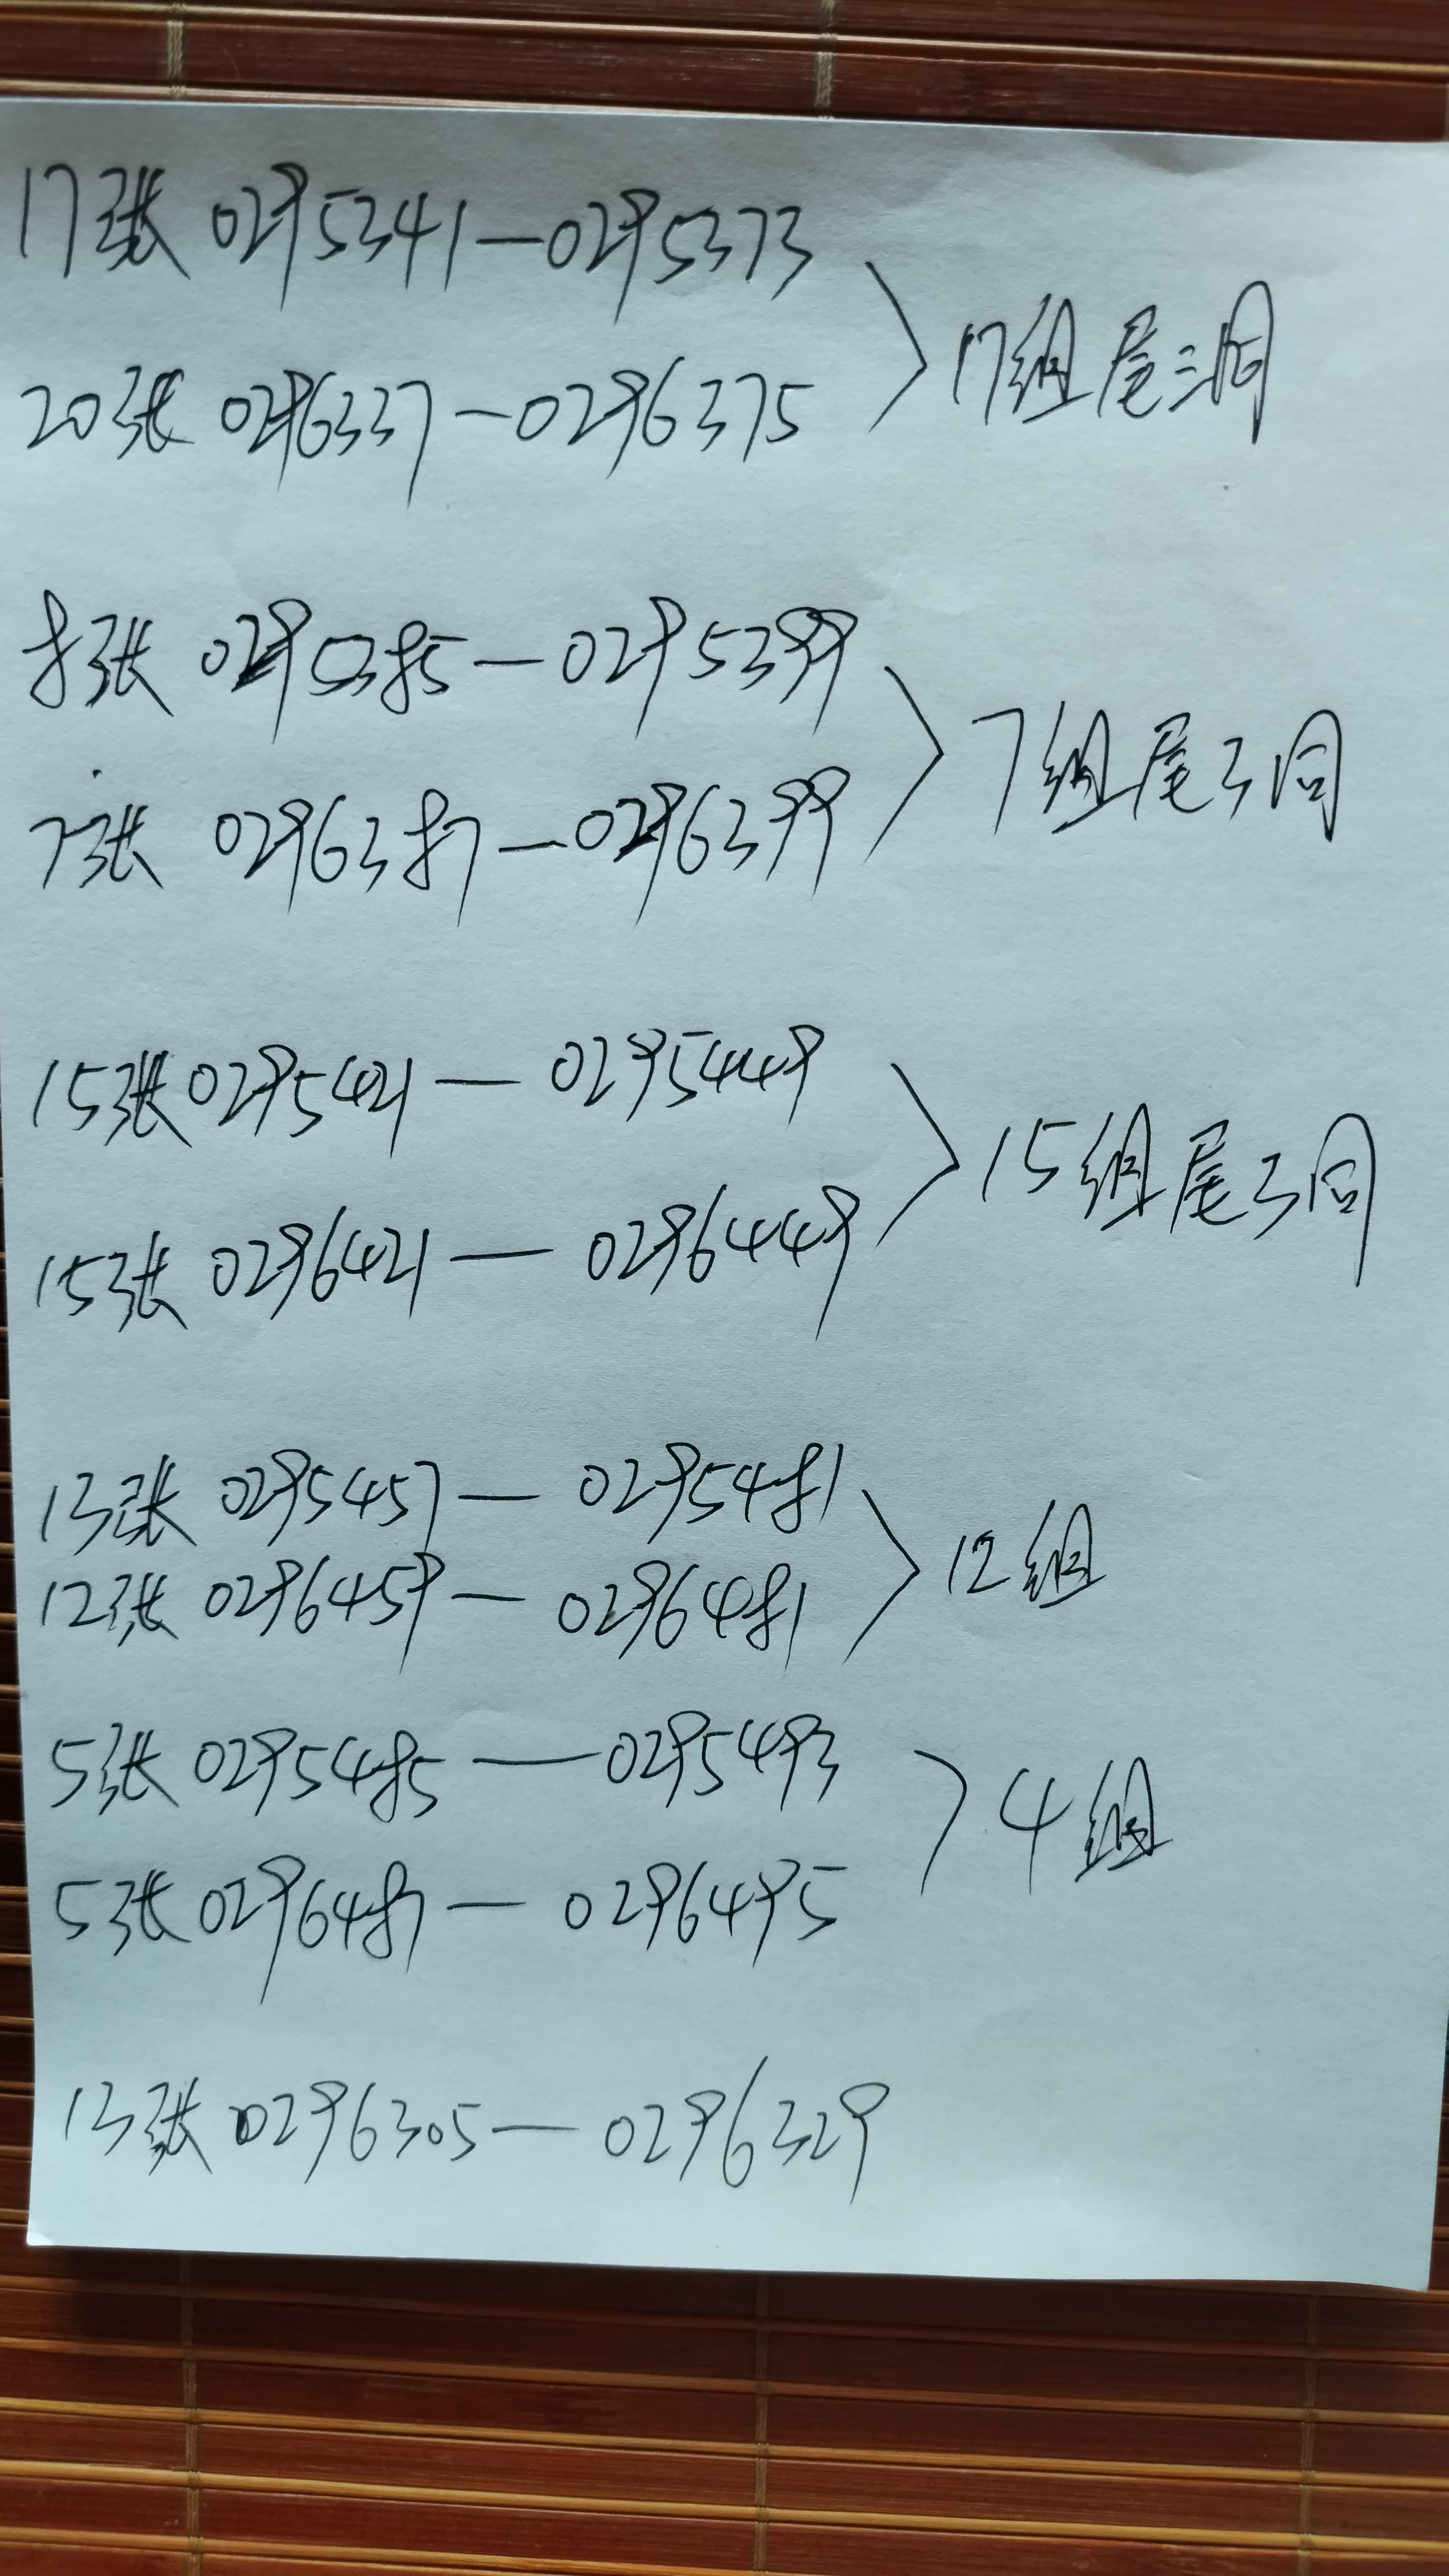 17张 0295341—0295373
20张 0296337—0296375
17组尾三同
8张 0295385—0295399
7张 0296387—0296399
7组尾3同
15张0295421—0295449
15张 0296421—0296449
15组尾3同
13张 0295457—0295481
12张 0296459—0296481
12组
5张0295485—0295493
5张0296487—0296495
4组
13张 0296305—0296329